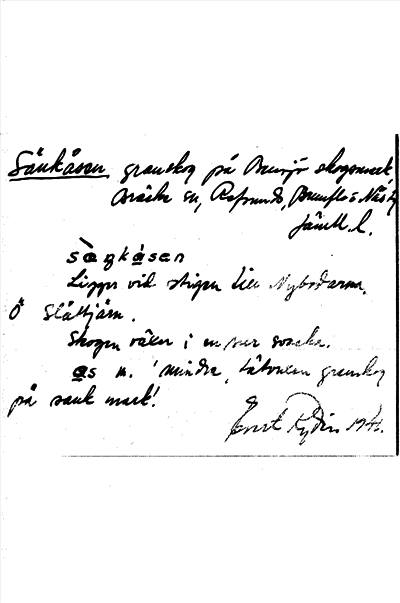 Sänkåsen, granskog på Bensjö skogsmark
Bräcke sn, Refsunds, Brunflo o Näs tg
Jämtl. l.
sàŋkásan
Ligger vid stigen till Nybodarna,
Ö Slåttjärn.
Skogen växer i en sur svacka.
ås m. 'mindre, tätvuxen granskog
på sank mark'.
Evert Rydin 194